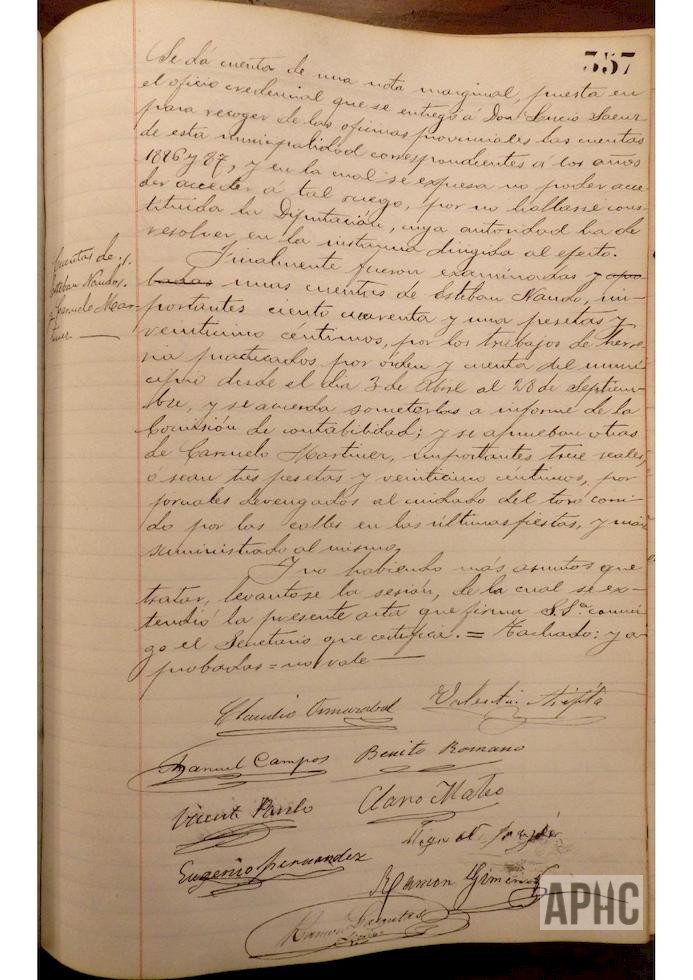 357
Se dá cuenta de una nota marginal, puesta en
el oficio credencial que se entregó á Don Lucio Saenz
para recoger de las oficinas provinciales las cuentas
de esta municipalidad correspondientes á los años
1886 y 87, y en la cual se expresa no poder acce-
der acceder á tal ruego, por no hallarse cons-
tituida la Diputación, cuya autoridad ha de
resolver en la instancia dirigida al efecto.
Finalmente fueron examinadas y apro-
badas unas cuentas de Esteban Nando, im-
portantes ciento cuarenta y una pesetas y
veinticinco céntimos, por los trabajos de herre-
ria practicados por órden y cuenta del muni-
cipio desde el dia 3 de Abre al 28 de Septiem-
bre, y se acuerda someterlas a informe de la
Comisión de contabilidad; y se aprueban otras
de Carmelo Martinez, importantes trece reales,
ó sean tres pesetas y veinticinco centimos, por
jornales devengados al cuidado del toro corri-
do por las calles en las últimas fiestas, y
suministrado al mismo.
Y no habiendo más asuntos que
tratar, levantose la sesión, de la cual se ex-
tendió la presente acta que firma S.Sa. conmi-
go el Secretario que certifica. = Tachado: y a-
probadas = no vale
Cuentas de
Esteban Nando y
Carmelo Mar-
tinez
Claudio Valentin
Manuel Campos Benito Romano
Vicente Claro Mateo
Eugenio Fernandez
Ramon Gimenez
Ramon
APHC